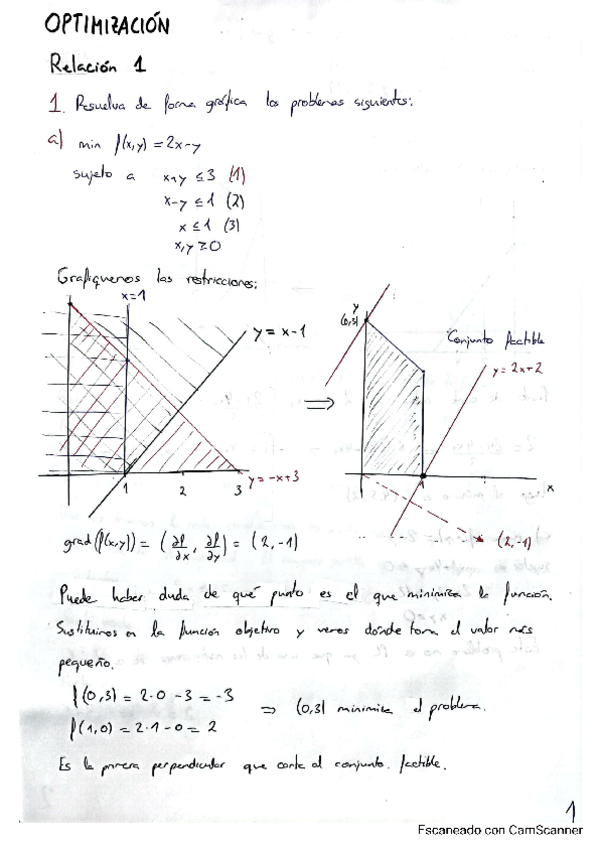 OPTIMIZACIÓN
Relación 1
1. Resuelva de forma gráfica los problemas siguientes:
a) min f(x,y) = 2x-y
sujeto a x+y ≤ 3 (1)
x-y ≤ 1 (2)
x ≤ 1 (3)
x,y ≥ 0
Grafiquemos las restricciones:
x=1
y = x-1
y = -x+3
1 2 3
⇒
y
(0,3)
Conjunto factible
y = 2x+2
x
1
(2,-1)
grad(f(x,y)) = (∂f/∂x, ∂f/∂y) = (2,-1)
Puede haber duda de qué punto es el que minimiza la función.
Sustituimos en la función objetivo y vemos dónde toma el valor más
pequeño.
f(0,3) = 2·0 - 3 = -3
⇒ (0,3) minimiza el problema.
f(1,0) = 2·1 - 0 = 2
Es la primera perpendicular que corta al conjunto factible.
1
Escaneado con CamScanner